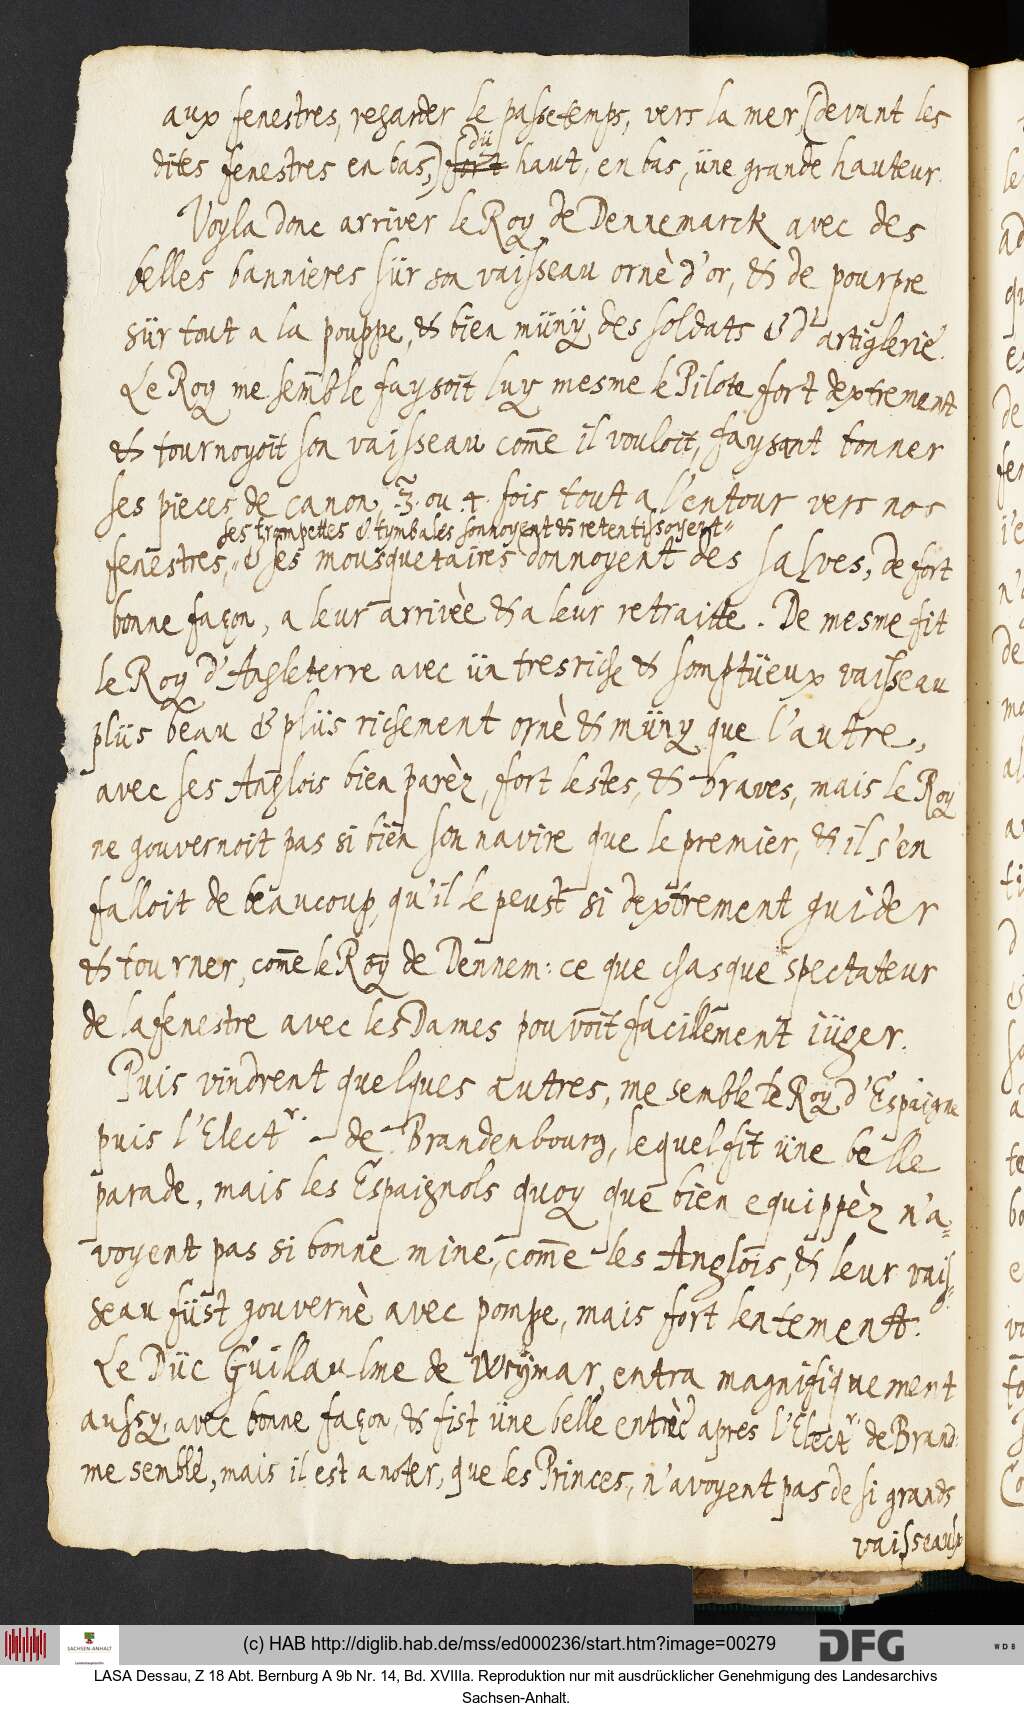 aux fenestres, regarder le passetemps, vers la mer, (devant les
dites fenestres en bas,) fort dü haut, en bas, üne grande hauteur.
Voyla donc arriver le Roy de Dennemarck avec des
belles bannieres sür son vaisseau ornè d'or, & de pourpre
sür tout a la pouppe, & bien müny, des soldats & d'artiglerie.
Le Roy me semble faysoit luy mesme le Pilote fort dextrement
& tournoyoit son vaisseau com̄e il vouloit, faysant tonner
ses pieces de canon, 3. ou 4. fois tout a l'entour vers nos
ses trompettes & tymbales sonnoyent & retentissoyent
fenestres, & ses mousquetaires donnoyent des salves, de fort
bonne façon, a leur arrivèe & a leur retraitte. De mesme fit
le Roy d'Angleterre avec ün tres riche & somptüeux vaisseau
plüs beau & plüs richement ornè & müny que l'autre,
avec ses Anglois bien parèz, fort lestes, & braves, mais le Roy
ne gouvernoit pas si bien son navire que le premier, & il s'en
falloit de beaucoup, qu'il le peust si dextrement guider
& tourner, com̄e le Roy de Dennem: ce que chasque spectateur
de la fenestre avec les Dames pouvoit facilement iüger.
Puis vindrent quelques autres, me semble le Roy d'Espaigne
puis l'Elect.r de Brandenbourg, lequel fit üne belle
parade, mais les Espaignols quoy que bien equippèz n'a=
voyent pas si bonne mine, com̄e les Anglois, & leur vais=
seau füst gouvernè avec pompe, mais fort lentement.
Le Düc Guillaulme de Weymar, entra magnifiquement
aussy, avec bonne façon & fist üne belle entrèe apres l'Elect.r de Brand:
me semble, mais il est a noter, que les Princes, n'avoyent pas de si grands
vaisseaulx
(c) HAB http://diglib.hab.de/mss/ed000236/start.htm?image=00279
SACHSEN-ANHALT
DFG
WDB
LASA Dessau, Z 18 Abt. Bernburg A 9b Nr. 14, Bd. XVIIIa. Reproduktion nur mit ausdrücklicher Genehmigung des Landesarchivs
Sachsen-Anhalt.